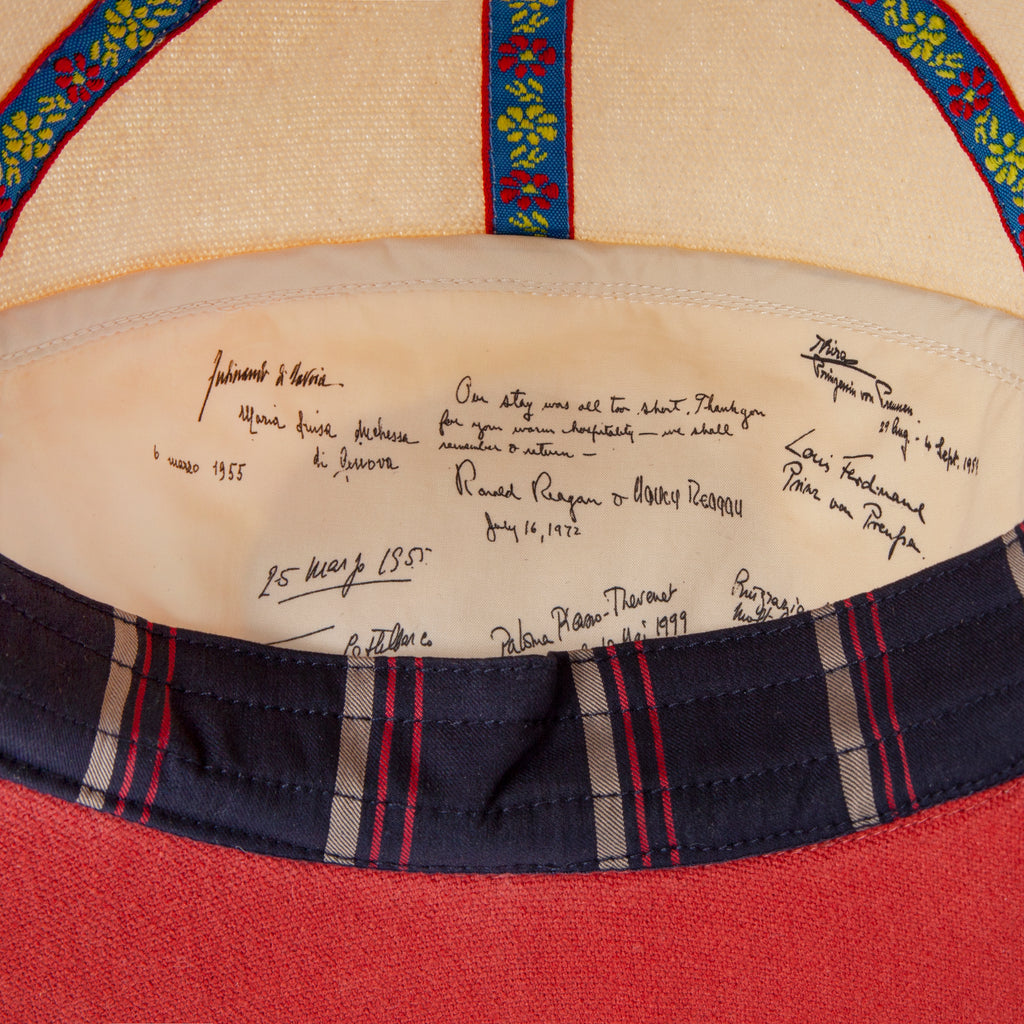 Ferdinando di Savoia.
Maria Luisa duchessa
di Genova
6 marzo 1955
Our stay was all too short. Thank you
for your warm hospitality — we shall
remember & return —
Ronald Reagan & Nancy Reagan
July 16, 1972
Kira
Prinzessin von Preussen
29 Aug. - 4 Sept. 195
Louis Ferdinand
Prinz von Preußen.
25 marzo 1955
Paloma Picasso-Thevenet
Mai 1999